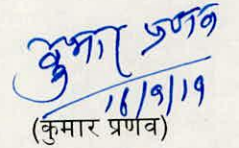 कुमार प्रणव
16/9/19
(कुमार प्रणव)